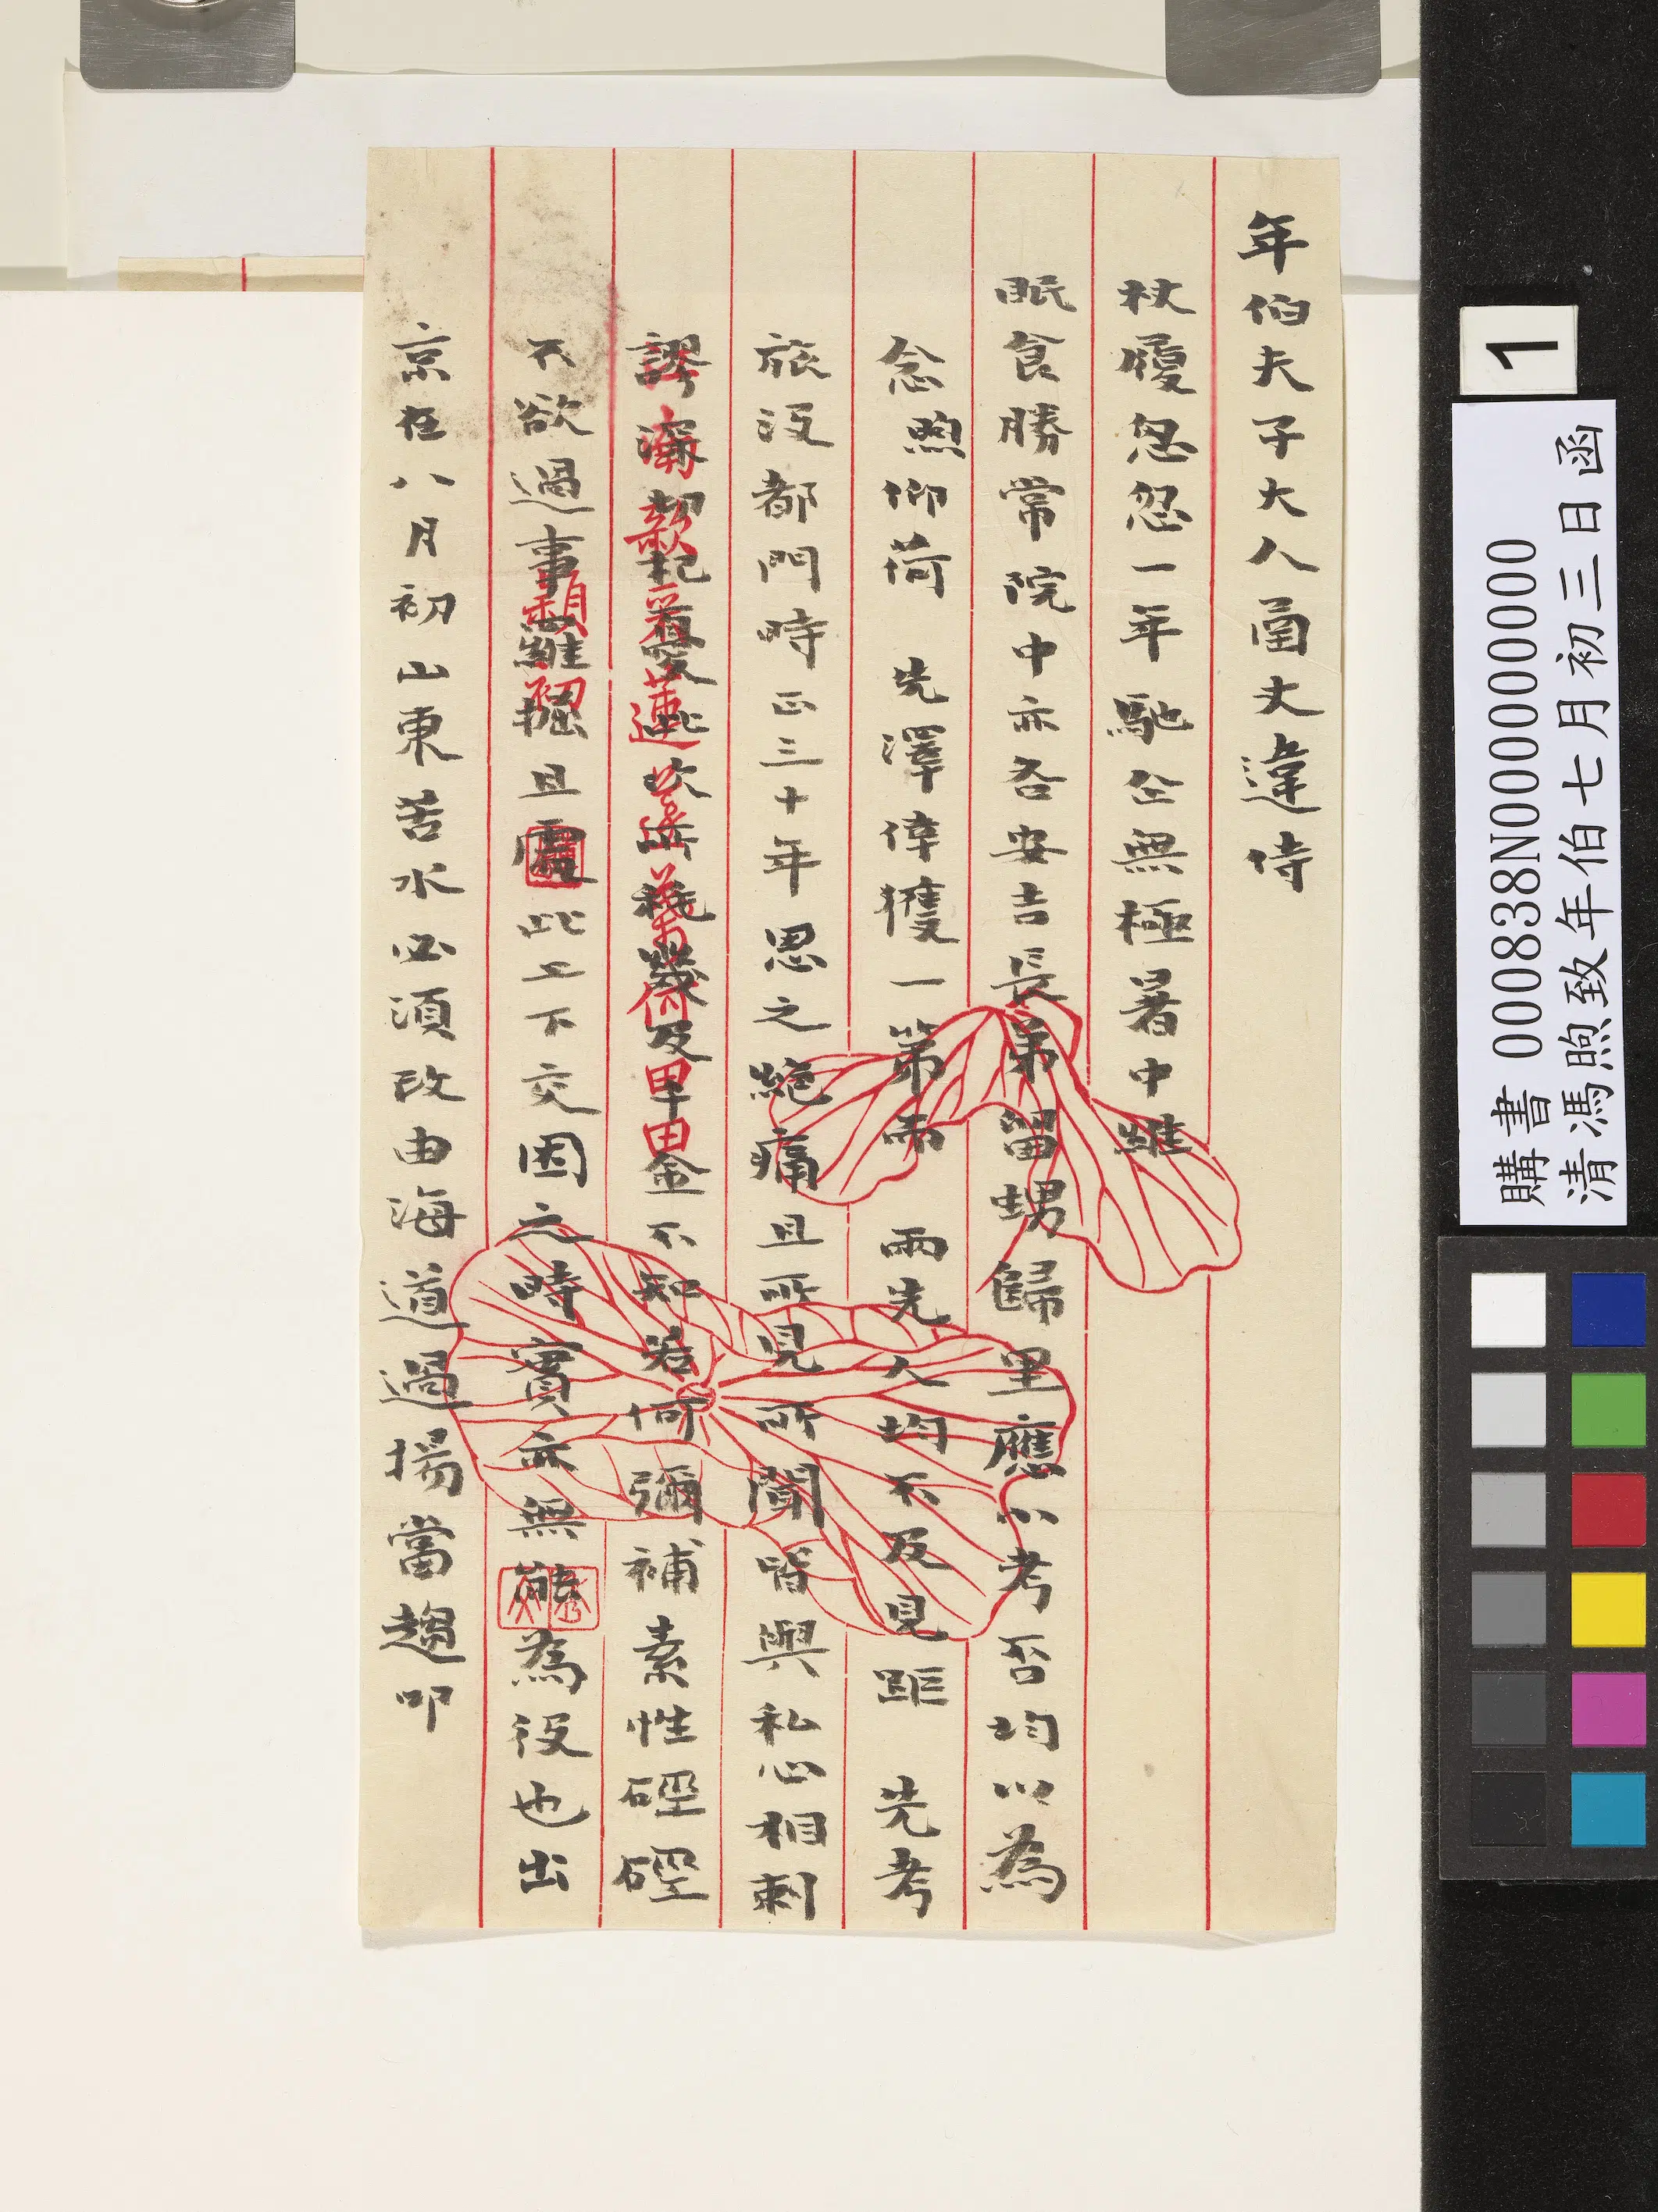 年伯夫子大人函丈違侍
杖履忽忽一年馳仝無極暑中維
眠食勝常院中亦各安吉長弟留甥歸里應小考否均以為
念煦仰荷 先澤倖獲一第而 兩先人均不及見距 先考
旅沒都門時正三十年思之絶痛且所見所聞皆與私心相刺
謬深 此次 幾及千金不知若何彌補素性硜硜
不欲過事 羅掘且處此上下交困之時實亦無能為役也出
京在八月初山東苦水必須改由海道過揚當趨叩
1
購書 000838N000000000
清馮煦致年伯七月初三日函